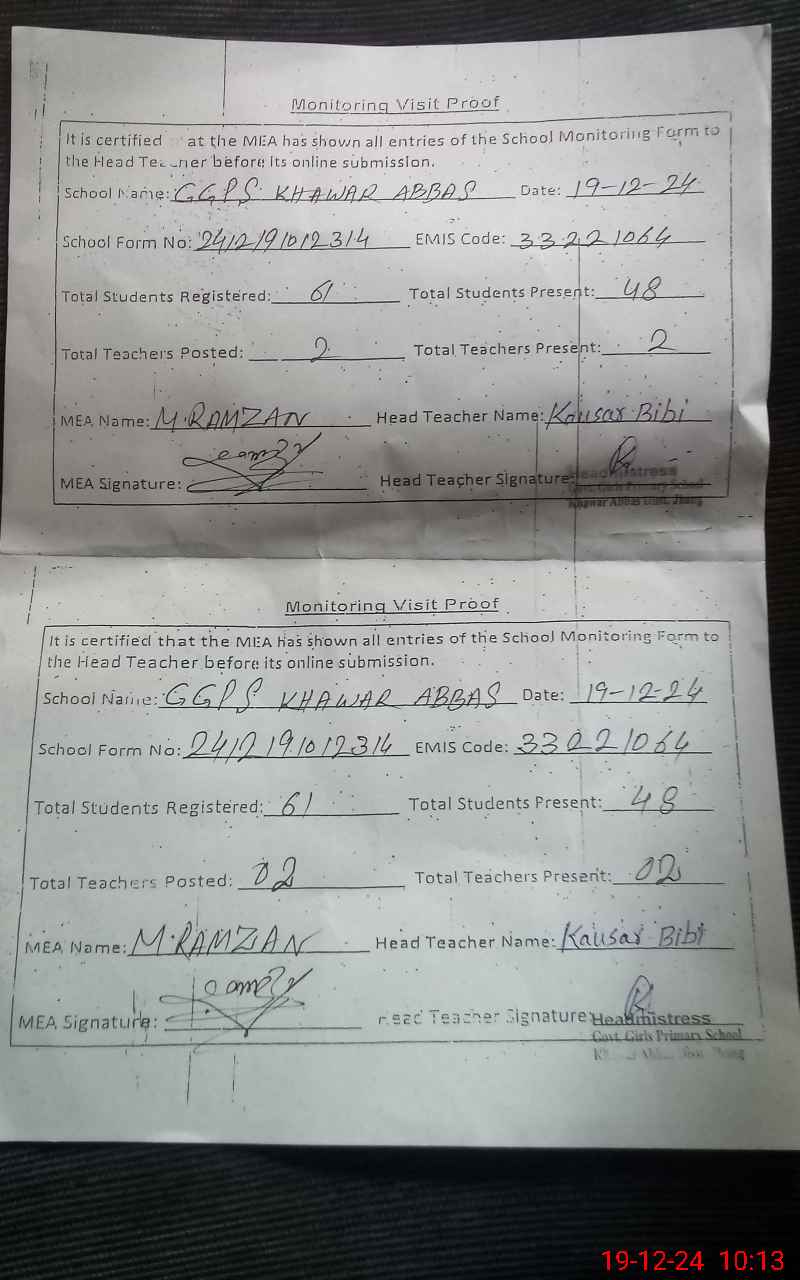 Monitoring Visit Proof
It is certified at the MEA has shown all entries of the School Monitoring Form to
the Head Teacher before its online submission.
School Name: GGPS KHAWAR ABBAS Date: 19-12-24
School Form No: 2412191012314 EMIS Code: 33221064
Total Students Registered: 61 Total Students Present: 48
Total Teachers Posted: 2 Total Teachers Present: 2
MEA Name: M.RAMZAN Head Teacher Name: Kausar Bibi
MEA Signature: Head Teacher Signature:
Headmistress
Govt. Girls Primary School
Khawar Abbas Distt. Jhang
Monitoring Visit Proof
It is certified that the MEA has shown all entries of the School Monitoring Form to
the Head Teacher before its online submission.
School Name: GGPS KHAWAR ABBAS Date: 19-12-24
School Form No: 2412191012314 EMIS Code: 33221064
Total Students Registered: 61 Total Students Present: 48
Total Teachers Posted: 02 Total Teachers Present: 02
MEA Name: M.RAMZAN Head Teacher Name: Kausar Bibi
MEA Signature: Head Teacher Signature:
Headmistress
Govt. Girls Primary School
Jhang
19-12-24 10:13